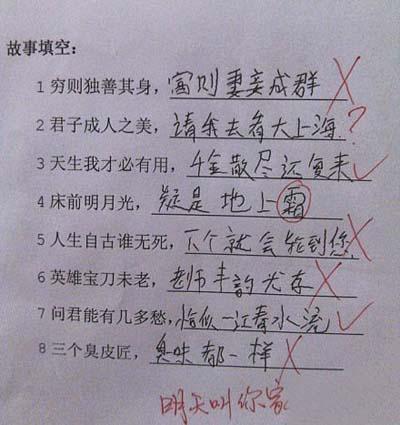 故事填空：
1 穷则独善其身，富则妻妾成群
2 君子成人之美，请我去看大上海？
3 天生我才必有用，千金散尽还复来
4 床前明月光，疑是地上霜
5 人生自古谁无死，下个就会轮到您
6 英雄宝刀未老，老师丰韵尤存
7 问君能有几多愁，恰似一江春水流
8 三个臭皮匠，臭味都一样
明天叫你家